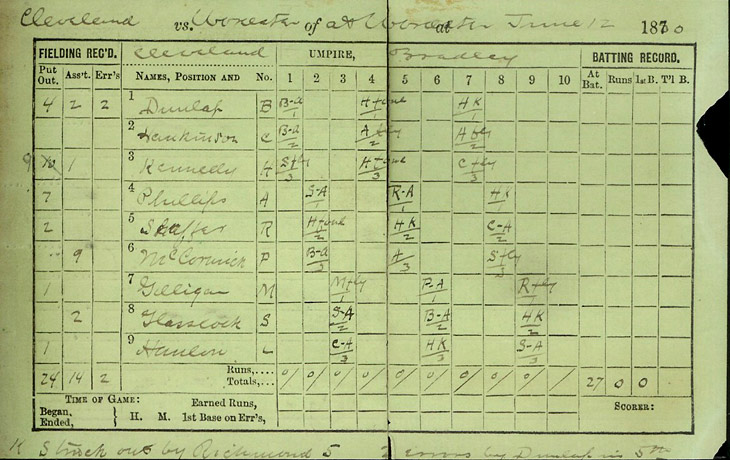 Cleveland vs. Worcester of at Worcester at June 12 1880
FIELDING REC'D. Cleveland UMPIRE, Bradley BATTING RECORD.
Put Out. Ass't. Err's NAMES, POSITION AND No. 1 2 3 4 5 6 7 8 9 10 At Bat. Runs 1st B. T'l B.
4 2 2 1 Dunlap B B-A/1 H foul/1 HK/1
2 Hankinson C B-A/2 A fly/2 A fly/2
9 10 1 3 Kennedy H S fly/3 H foul/3 C fly/3
7 4 Phillips A S-A/1 R-A/1 HK/1
2 5 Shaffer R H foul/2 HK/2 C-A/2
9 6 McCormick P B-A/3 A/3 S fly/3
1 7 Gilligan M M fly/1 P-A/1 R fly/1
2 8 Glasscock S S-A/2 B-A/2 HK/2
1 9 Hanlon L C-A/3 HK/3 S-A/3
24 14 2 Runs,.... Totals,... 0/ 0/ 0/ 0/ 0/ 0/ 0/ 0/ 0/ 27 0 0
TIME OF GAME: Earned Runs, SCORER:
Began. Ended, } H. M. 1st Base on Err's,
K Struck out by Richmond 5 2 errors by Dunlap in 5th